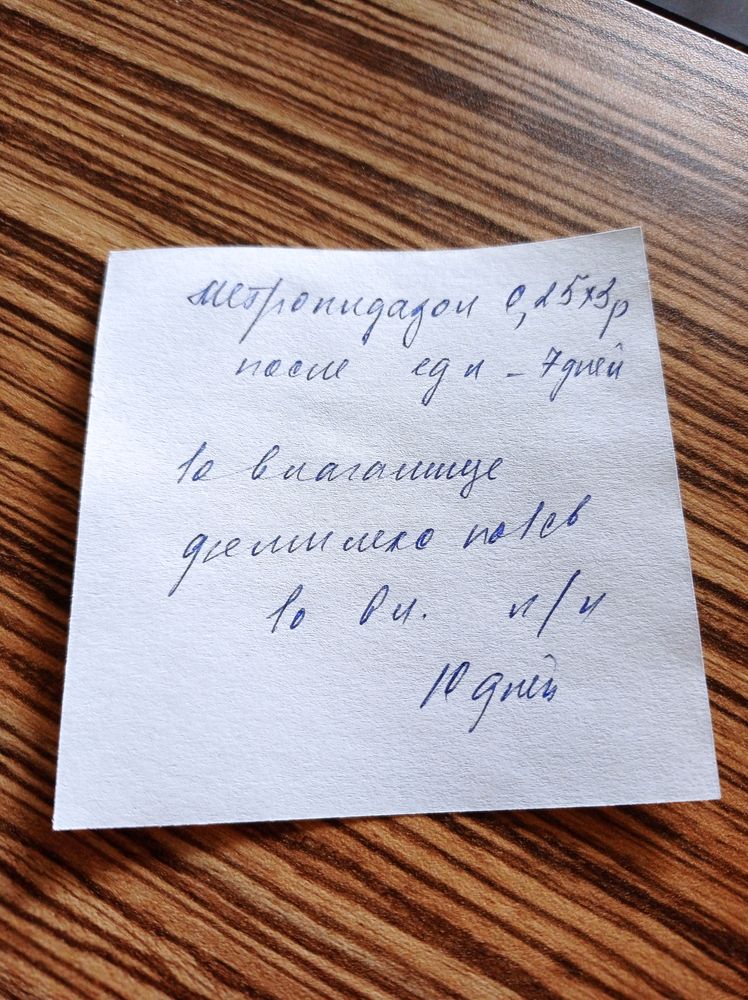 Метронидазол 0,25х3р
после еды – 7 дней
Во влагалище
по 1 св
Во вл. н/н
10 дней